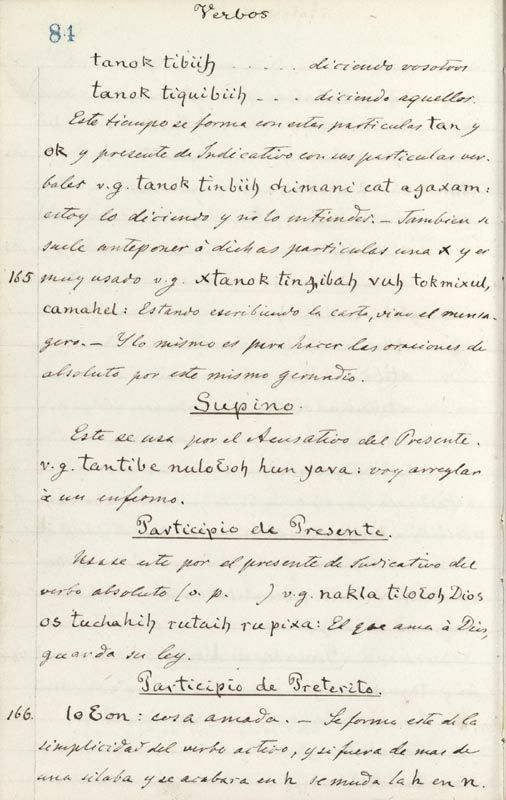 Verbos
84
tanok tibiih ..... diciendo vosotros
tanok tiquibiih ... diciendo aquellos.
Este tiempo se forma con estas particulas tan y
ok y presente de Indicativo con sus particulas ver-
bales v.g. tanok tinbiih chimani cat aɜaxam:
estoy lo diciendo y no lo entiendes. — Tambien se
suele anteponer á dichas particulas una x y es
165 muy usado v.g. xtanok tinꜯibah vuh tokmixul,
camahel: Estando escribiendo la carta, vino el mensa-
gero. — Y lo mismo es para hacer las oraciones de
absoluto por este mismo gerundio.
Supino.
Este se usa por el Acusativo del Presente.
v.g. tantibe nuloꜫoh hun yava: voy arreglar
á un enfermo.
Participio de Presente.
Usase este por el presente de Indicativo del
verbo absoluto (o. p. ) v.g. nakla tiloꜫoh Dios
os tuchahih rutaih rupixa: El que ama á Dios,
guarda su ley.
Participio de Preterito.
166. loꜫon: cosa amada. — Se forma este de la
simplicidad del verbo activo, y si fuera de mas de
una silaba y se acabara en h se muda la h en n.